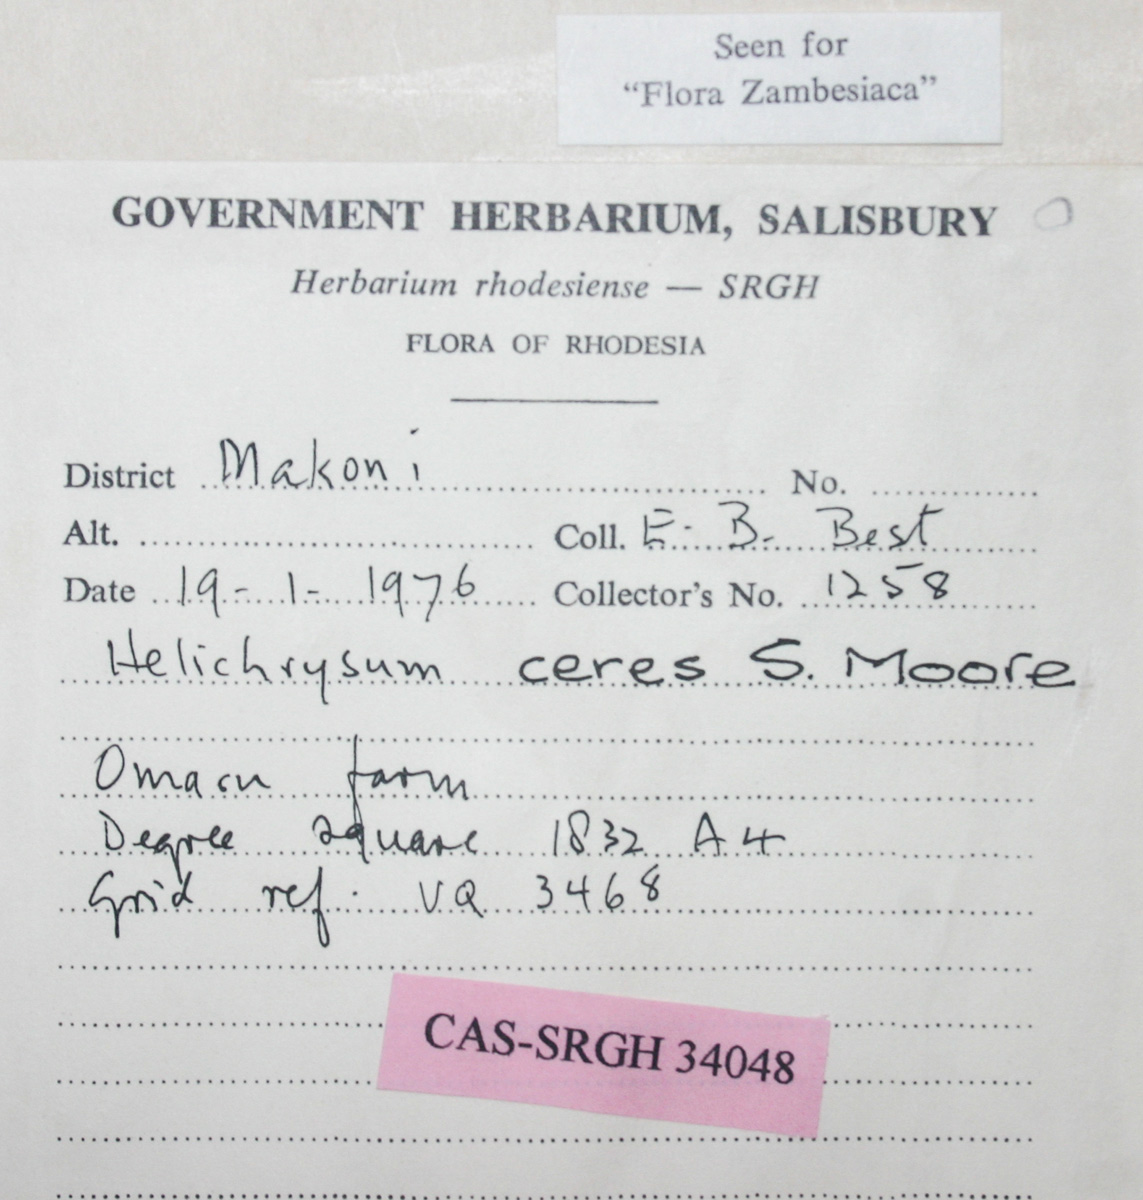 Seen for
“Flora Zambesiaca”
GOVERNMENT HERBARIUM, SALISBURY
Herbarium rhodesiense — SRGH
FLORA OF RHODESIA
District Makoni No.
Alt. Coll. E. B. Best
Date 19-1-1976 Collector's No. 1258
Helichrysum ceres S. Moore
farm
Degree square 1832 A4
Grid ref. VQ 3468
CAS-SRGH 34048